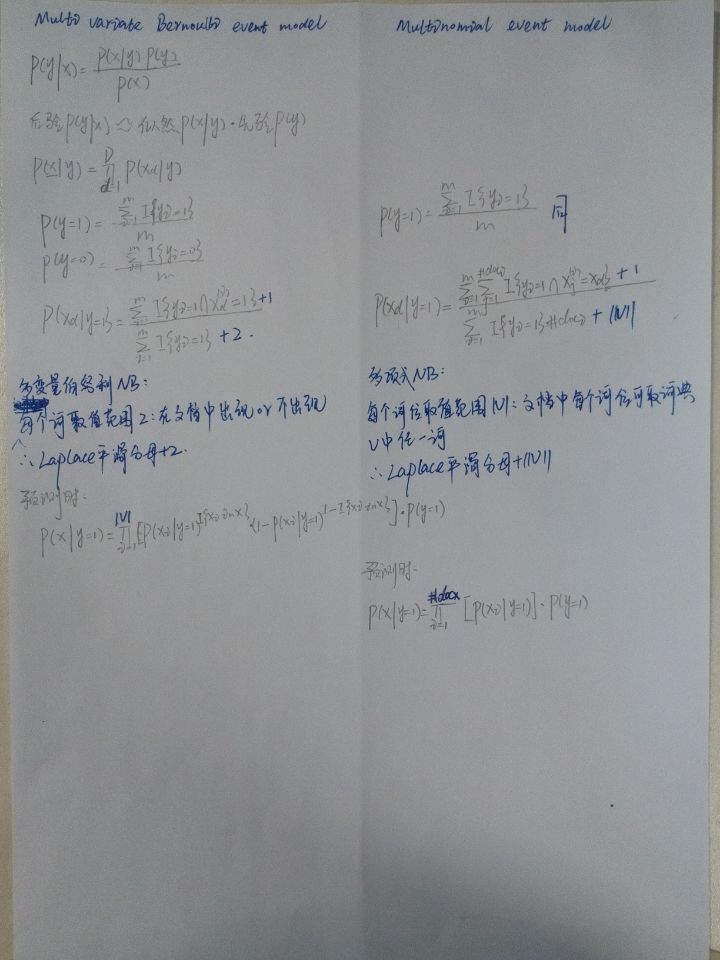 Multi variate Bernoulli event model
P(y|x) = P(x|y) P(y) / P(x)
后验P(y|x) => 似然P(x|y)·先验P(y)
P(x|y) = ∏_{d=1}^{D} P(x_d|y)
P(y=1) = ∑_{i=1}^{m} I{y_i=1} / m
P(y=0) = ∑_{i=1}^{m} I{y_i=0} / m
P(x_d|y=1) = ∑_{i=1}^{m} I{y_i=1 ∩ x_d^{(i)}=1} +1 / ∑_{i=1}^{m} I{y_i=1} +2.
多变量伯努利NB:
每个词取值范围2: 在文档中出现or不出现
∴ Laplace平滑分母+2.
预测时:
P(x|y=1) = ∏_{i=1}^{|V|} [P(x_i|y=1)^{I{x_i in x}} · (1-P(x_i|y=1)^{1-I{x_i in x}}]·P(y=1)
Multinomial event model
P(y=1) = ∑_{i=1}^{m} I{y_i=1} / m 同
P(x_d|y=1) = ∑_{i=1}^{m} ∑_{j=1}^{#doc_i} I{y_i=1 ∩ x_j^{(i)}=x_d} +1 / ∑_{i=1}^{m} I{y_i=1}·#doc_i + |V|
多项式NB:
每个词位取值范围|V|: 文档中每个词位可取词典
V中任一词
∴ Laplace平滑分母+|V|
预测时:
P(x|y=1) = ∏_{i=1}^{#docx} [P(x_i|y=1)]·P(y=1)